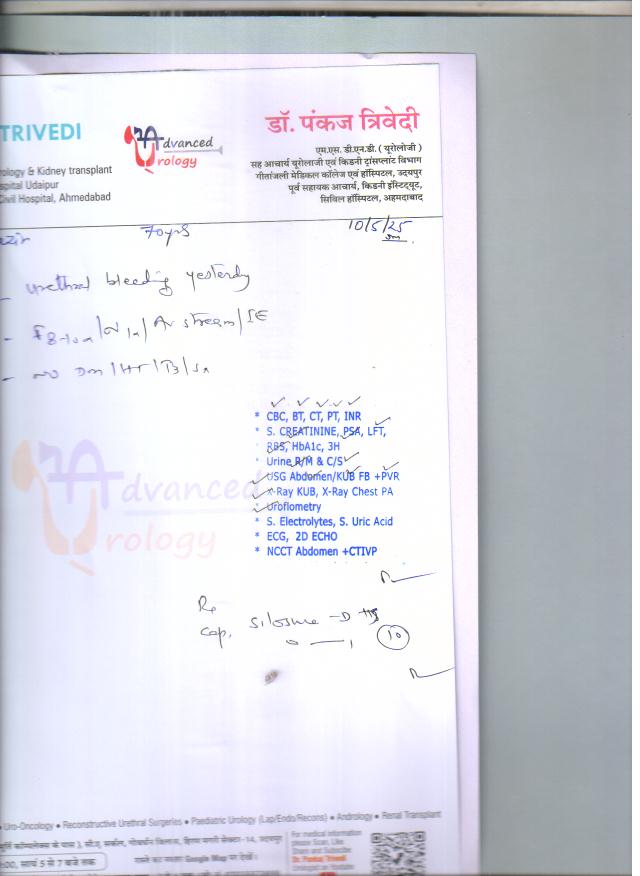 TRIVEDI
rology & Kidney transplant
spital Udaipur
Civil Hospital, Ahmedabad
Advanced
Urology
डॉ. पंकज त्रिवेदी
एम.एस. डी.एन.बी. ( यूरोलोजी )
सह आचार्य यूरोलाजी एवं किडनी ट्रांसप्लांट विभाग
गीतांजली मेडिकल कॉलेज एवं हॉस्पिटल, उदयपुर
पूर्व सहायक आचार्य, किडनी इंस्टिट्यूट,
सिविल हॉस्पिटल, अहमदाबाद
70yrs 10/5/25
- urethral bleeding yesterday
stream/IE
- no DM/HT/TB/
* CBC, BT, CT, PT, INR
* S. CREATININE, PSA, LFT,
* RBS, HbA1c, 3H
* Urine R/M & C/S
* USG Abdomen/KUB FB +PVR
* X-Ray KUB, X-Ray Chest PA
* Uroflometry
* S. Electrolytes, S. Uric Acid
* ECG, 2D ECHO
* NCCT Abdomen +CTIVP
Advanced
Urology
Rx
Cap. Silosure -D
0 — 1 10
Uro-Oncology • Reconstructive Urethral Surgeries • Paediatric Urology (Lap/Endo/Recons) • Andrology • Renal Transplant
:00, सायं 5 से 7 बजे तक
रास्ते का नक्शा Google Map पर देखें।
For medical information
please Scan, Like
Share and Subscribe
Dr. Pankaj Trivedi